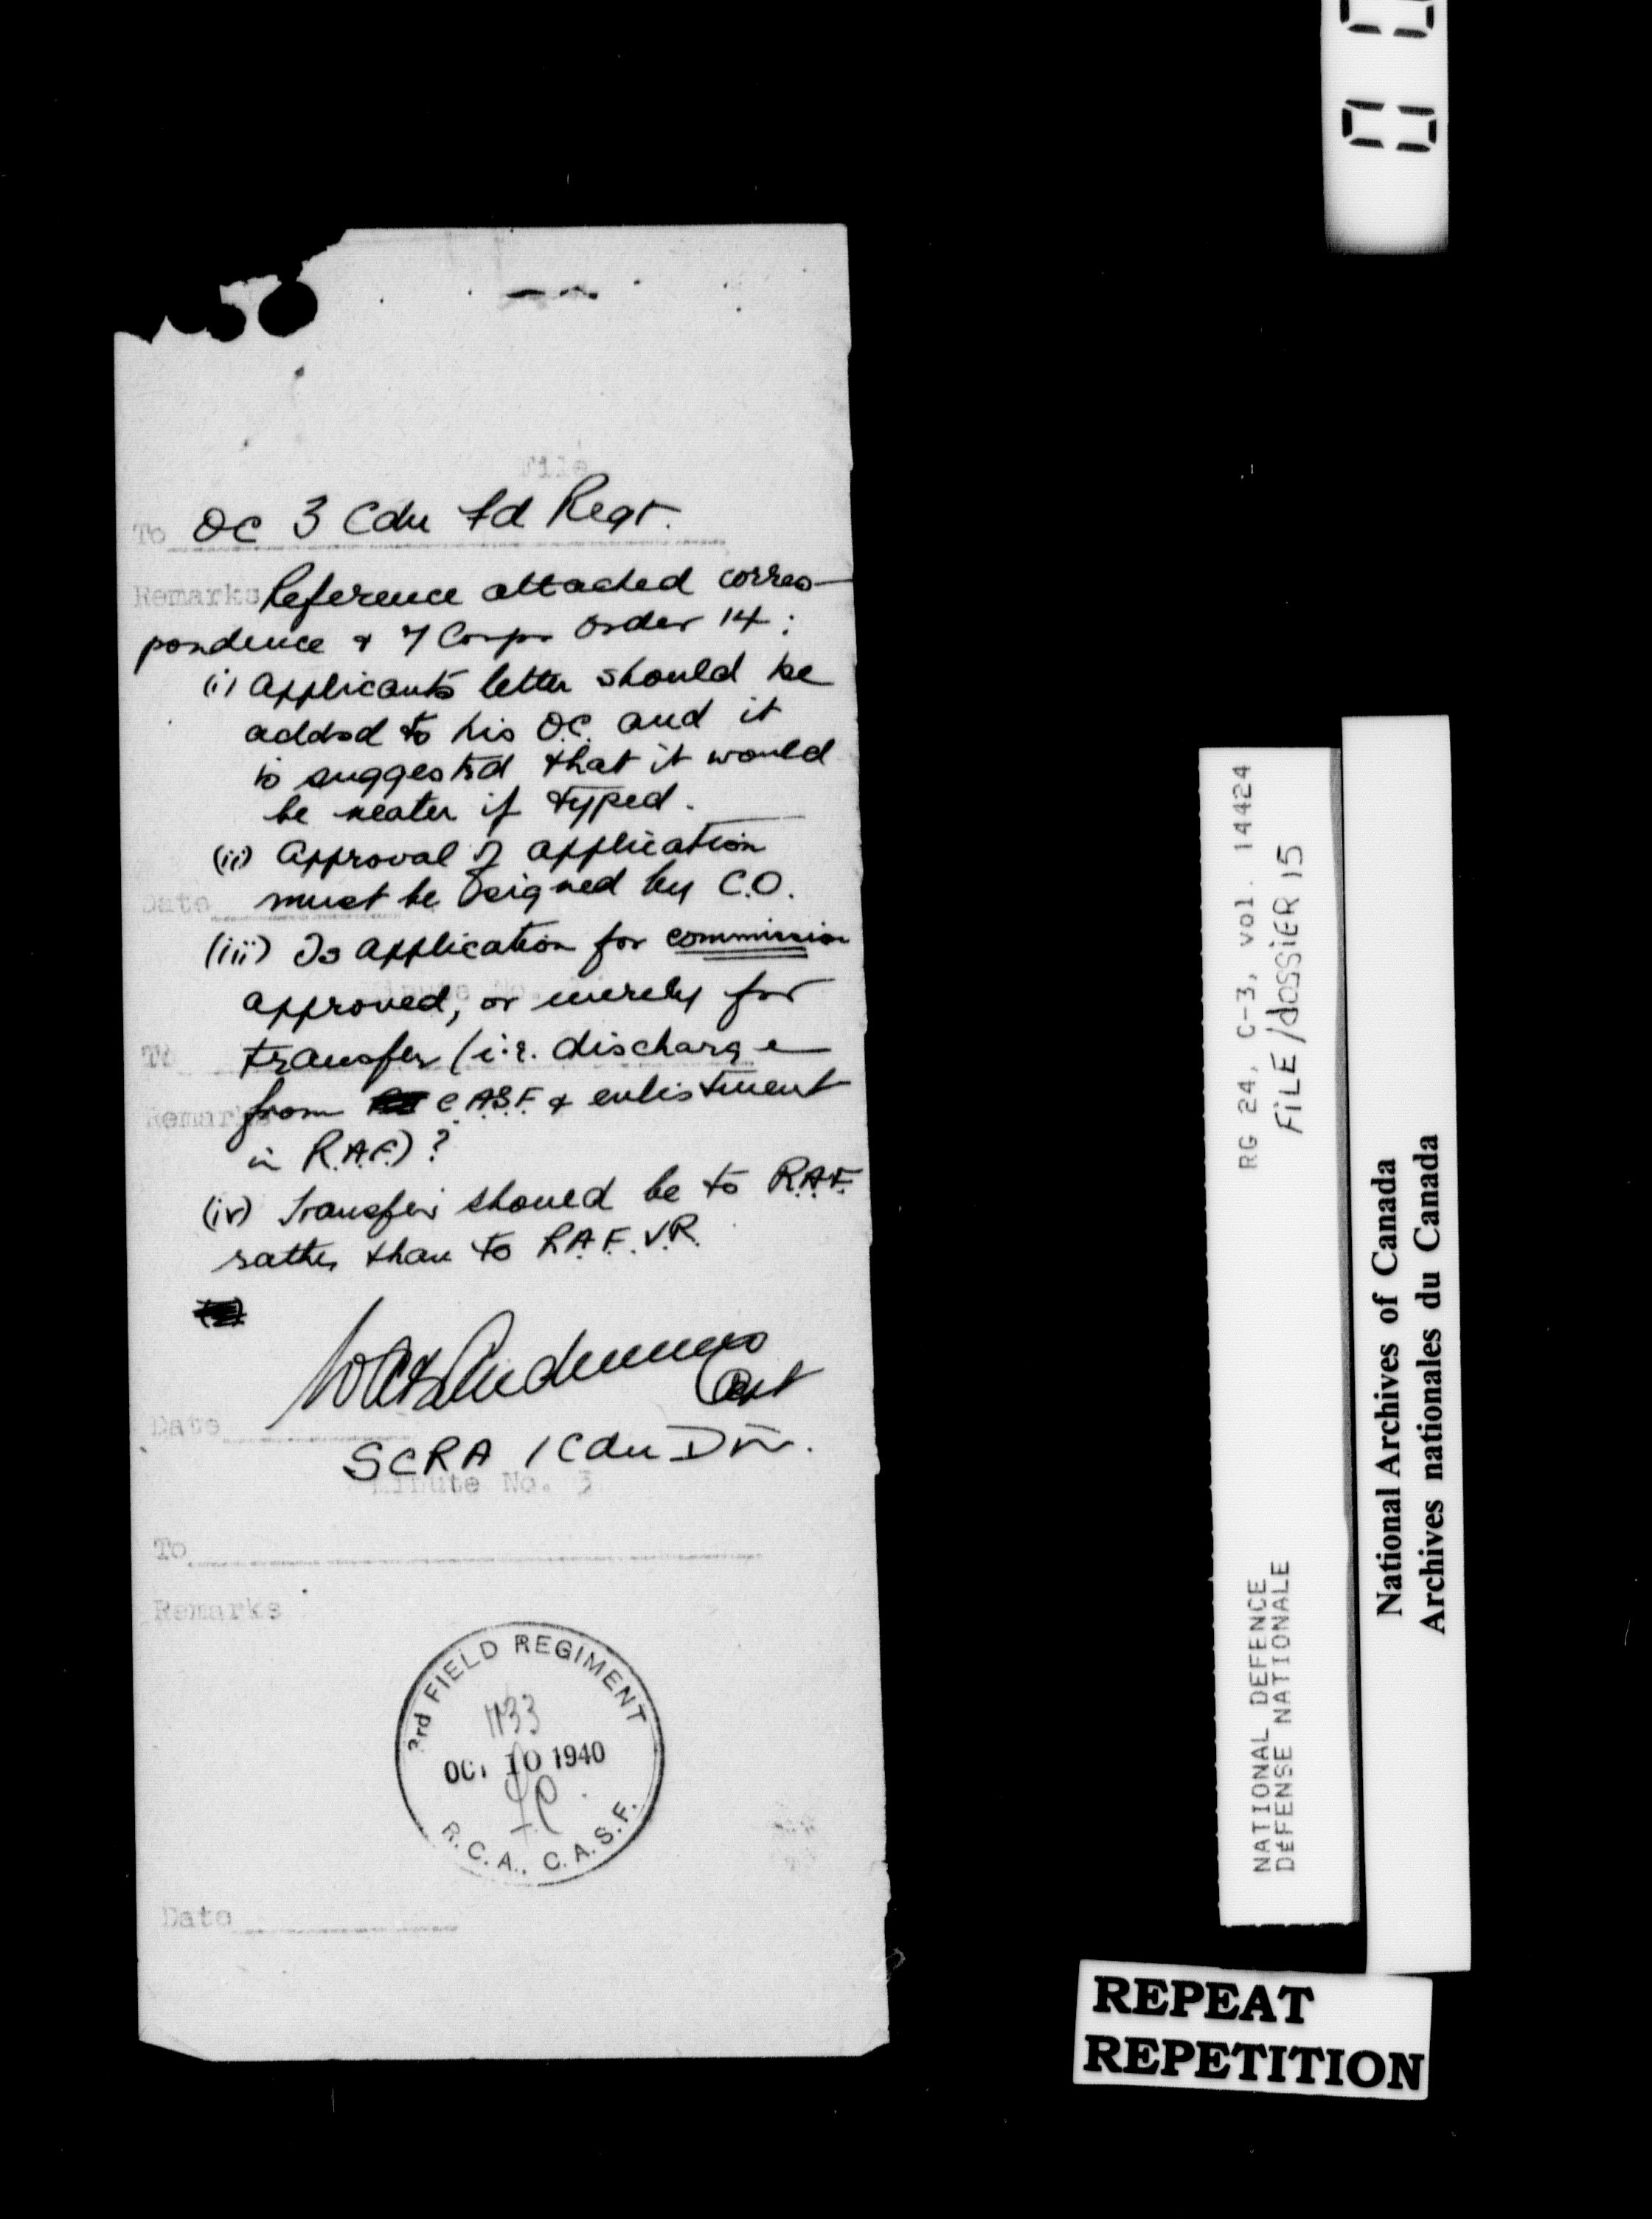 File
To OC 3 Cdn Fd Regt.
Remarks Reference attached corres-
pondence & 7 Corps Order 14:
(i) Applicants letter should be
addsd to his O.C. and it
is suggested that it would
be neater if typed.
(ii) Approval of application
must be signed by C.O.
Date
(iii) Is application for commission
approved, or merely for
To transfer (i.e. discharge
Remarks from C.A.S.F. & enlistment
in R.A.F.)?
(iv) Transfer should be to R.A.F.
rather than to R.A.F.V.R.
Capt
Date
SCRA 1 Cdn Div.
Minute No. 3
To
Remarks
3rd FIELD REGIMENT
1133
OCT 10 1940
R.C.A., C.A.S.F.
Date
RG 24, C-3, vol. 14424
FILE/dOSSIER 15
NATIONAL DEFENCE
DéFENSE NATIONALE
National Archives of Canada
Archives nationales du Canada
REPEAT
REPETITION